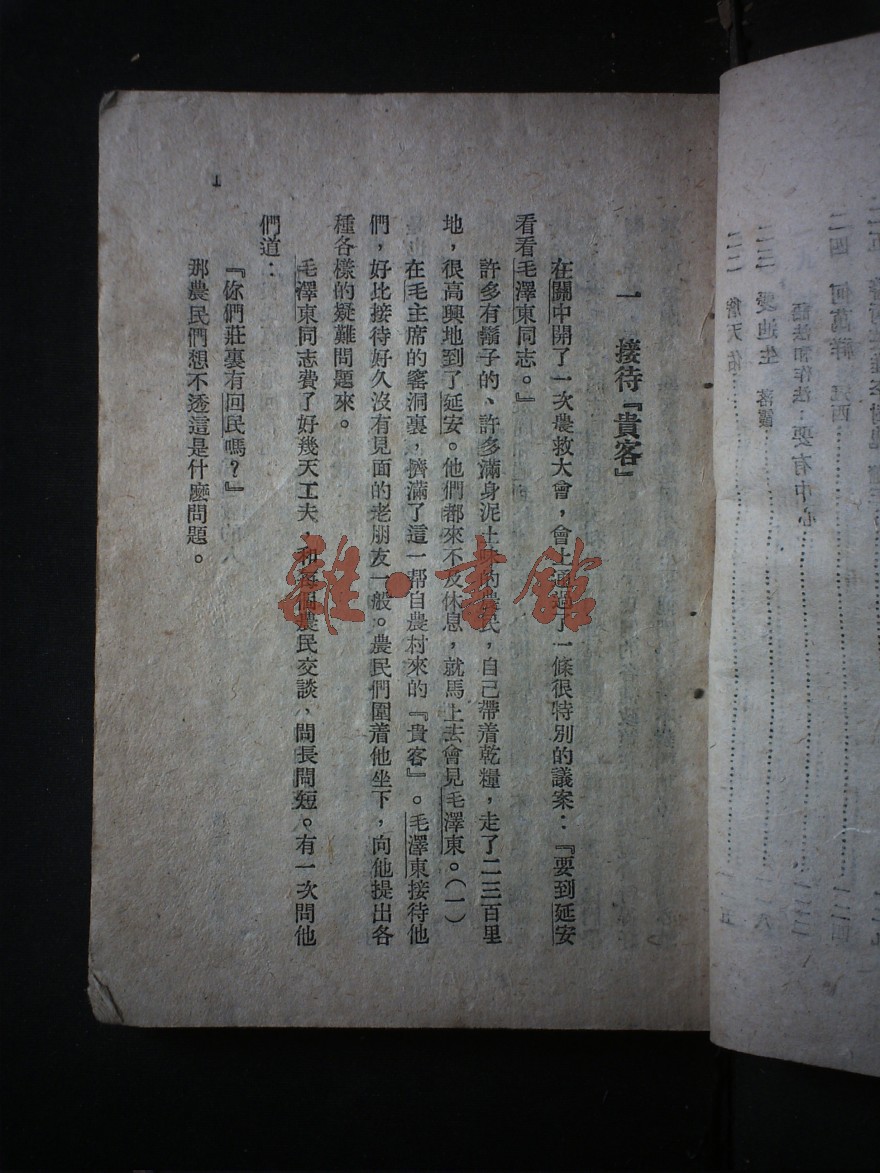 一、接待『貴客』
在關中開了一次農救大會，會上通過了一條很特別的議案：『要到延安
看看毛澤東同志。』
許多有鬍子的、許多滿身泥土味的農民，自己帶着乾糧，走了二三百里
地，很高興地到了延安。他們都來不及休息，就馬上去會見毛澤東。（一）
在毛主席的窰洞裏，擠滿了這一帮自農村來的『貴客』。毛澤東接待他
們，好比接待好久沒有見面的老朋友一般。農民們圍着他坐下，向他提出各
種各樣的疑難問題來。
毛澤東同志費了好幾天工夫，和每個農民交談、問長問短。有一次問他
們道：
『你們莊裏有回民嗎？』
那農民們想不透這是什麼問題。
1
雜·書館